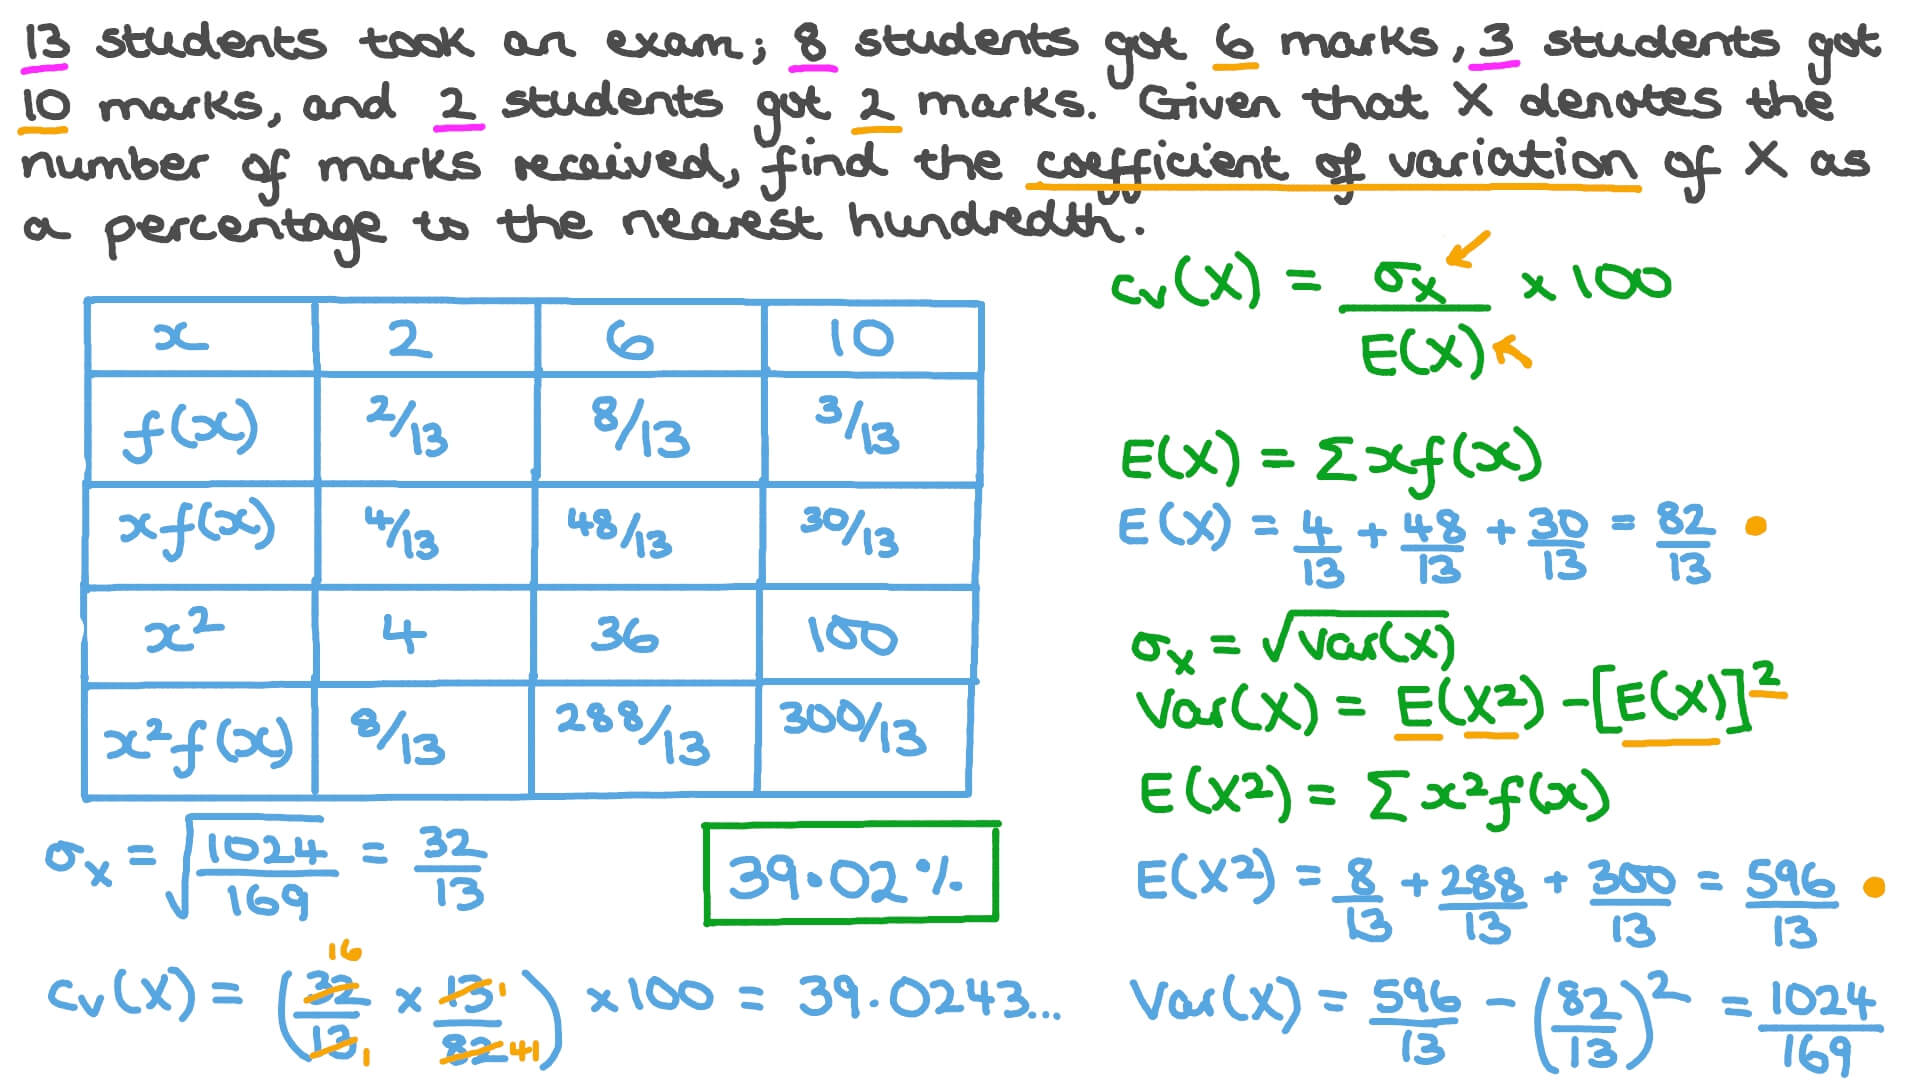 13 students took an exam; 8 students got 6 marks, 3 students got
10 marks, and 2 students got 2 marks. Given that X denotes the
number of marks received, find the coefficient of variation of X as
a percentage to the nearest hundredth.
x 2 6 10
f(x) 2/13 8/13 3/13
xf(x) 4/13 48/13 30/13
x² 4 36 100
x²f(x) 8/13 288/13 300/13
cᵥ(X) = σₓ / E(X) × 100
E(X) = Σxf(x)
E(X) = 4/13 + 48/13 + 30/13 = 82/13
σₓ = √Var(X)
Var(X) = E(X²) - [E(X)]²
E(X²) = Σx²f(x)
E(X²) = 8/13 + 288/13 + 300/13 = 596/13
Var(X) = 596/13 - (82/13)² = 1024/169
σₓ = √1024/169 = 32/13
16 1
cᵥ(X) = (32/13 × 13/82) × 100 = 39.0243...
1 41
39.02%